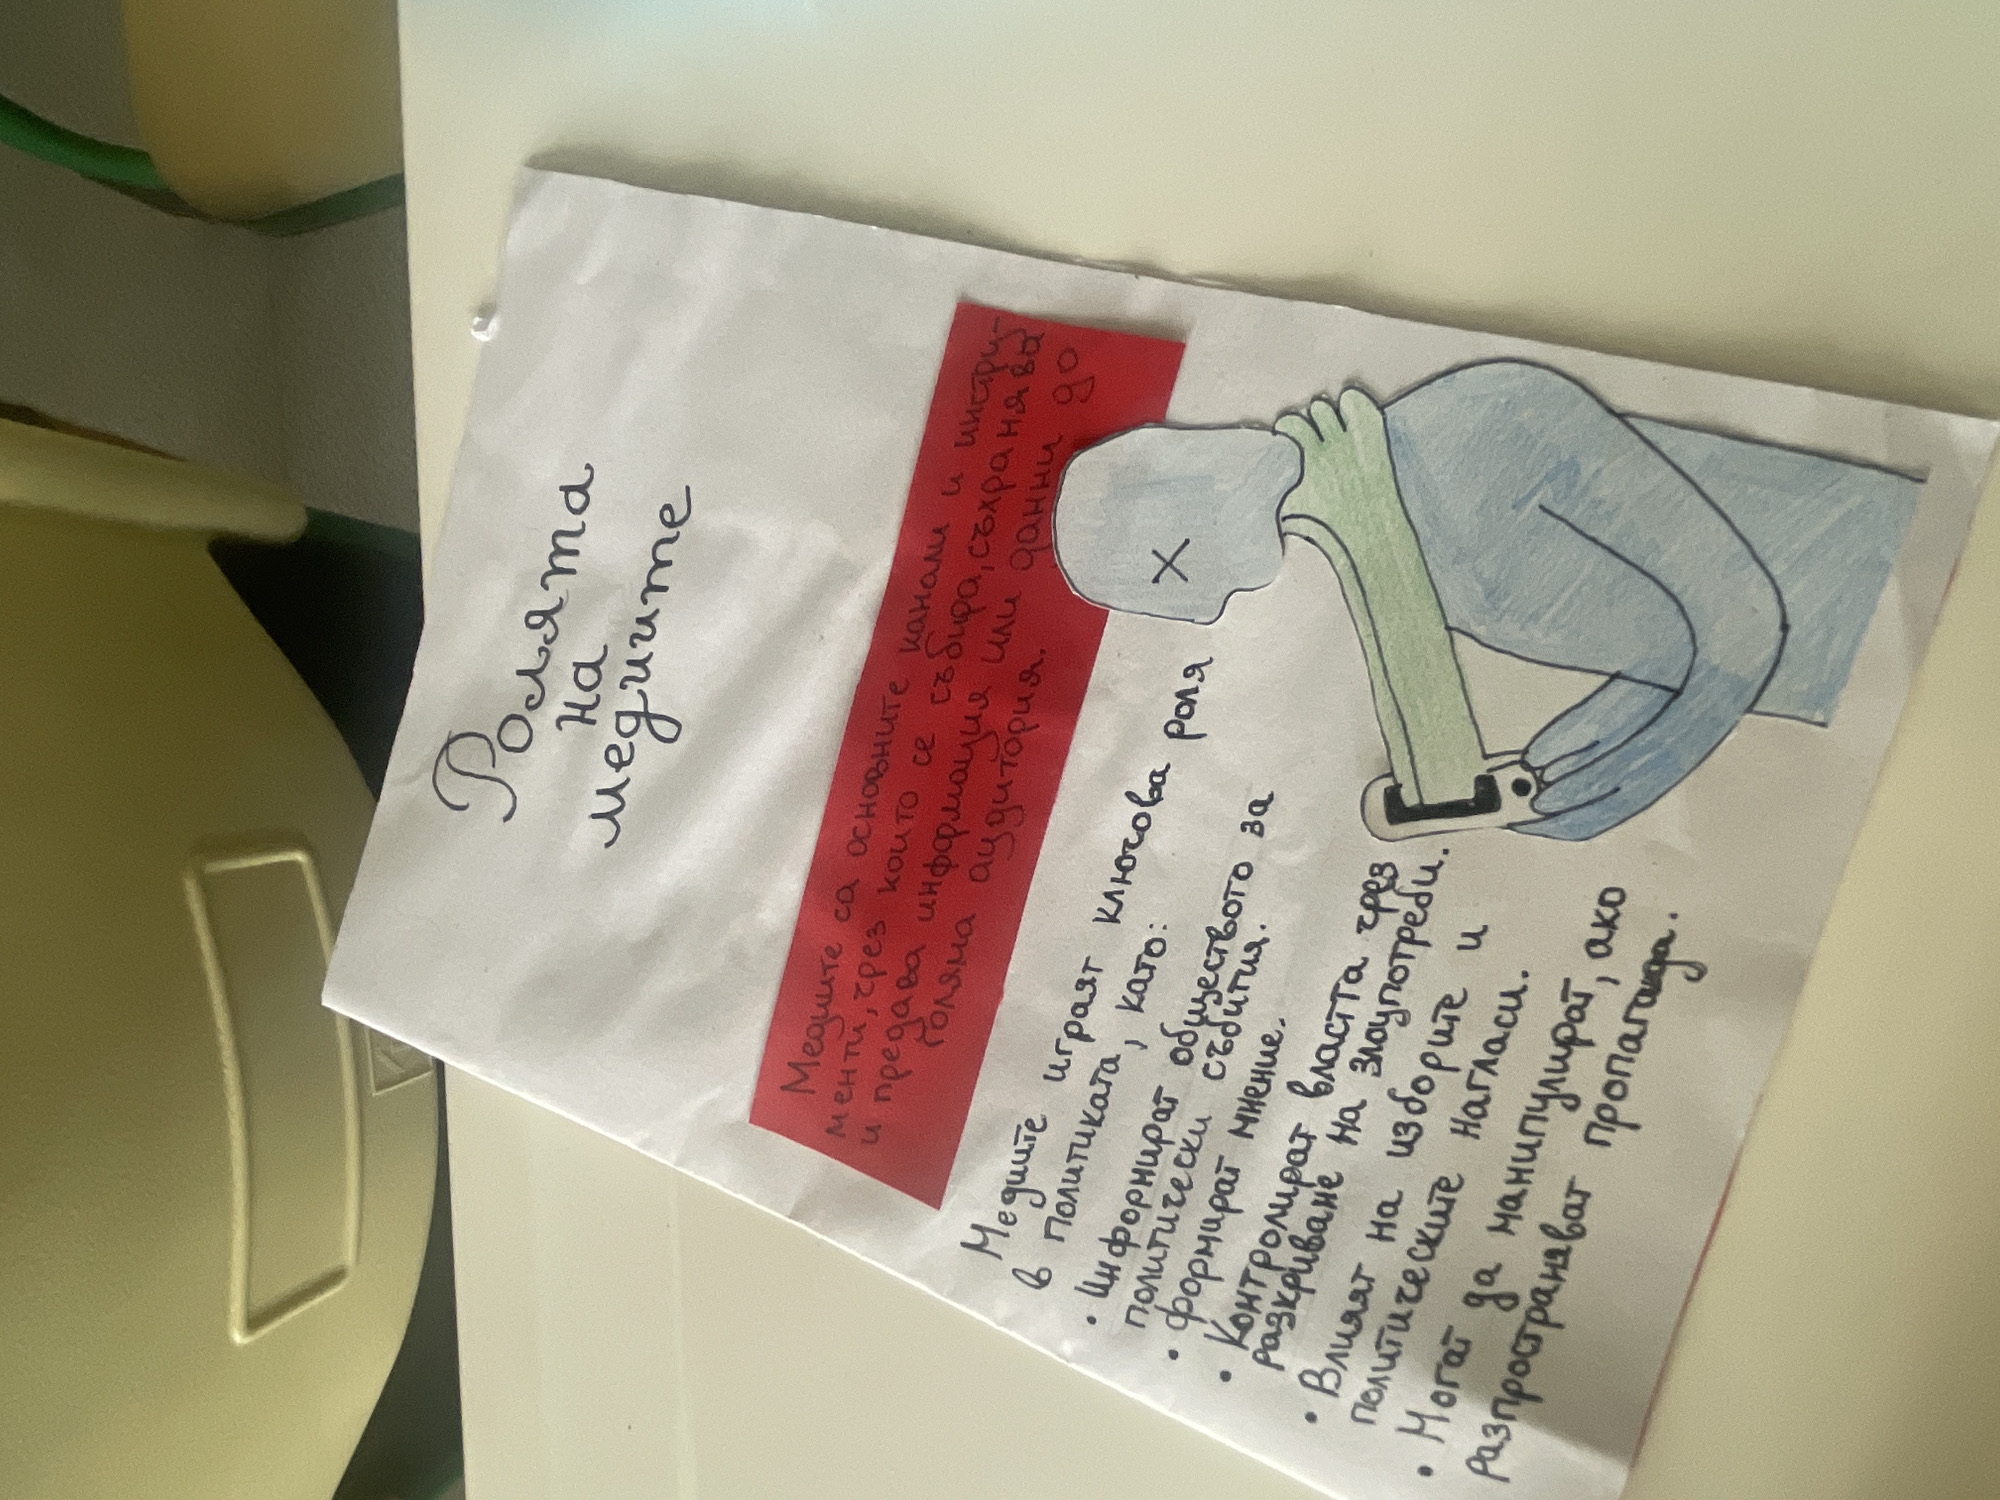 Ролята
на
медиите
Медиите са основните канали и инстру-
менти, чрез които се събира, съхранява
и предава информация или данни до
голяма аудитория.
Медиите играят ключова роля
в политиката, като:
• Информират обществото за
политически събития.
• формират мнение.
• Контролират властта чрез
разкриване на злоупотреби.
• Влияят на изборите и
политическите нагласи.
• Могат да манипулират, ако
разпространяват пропаганда.
X